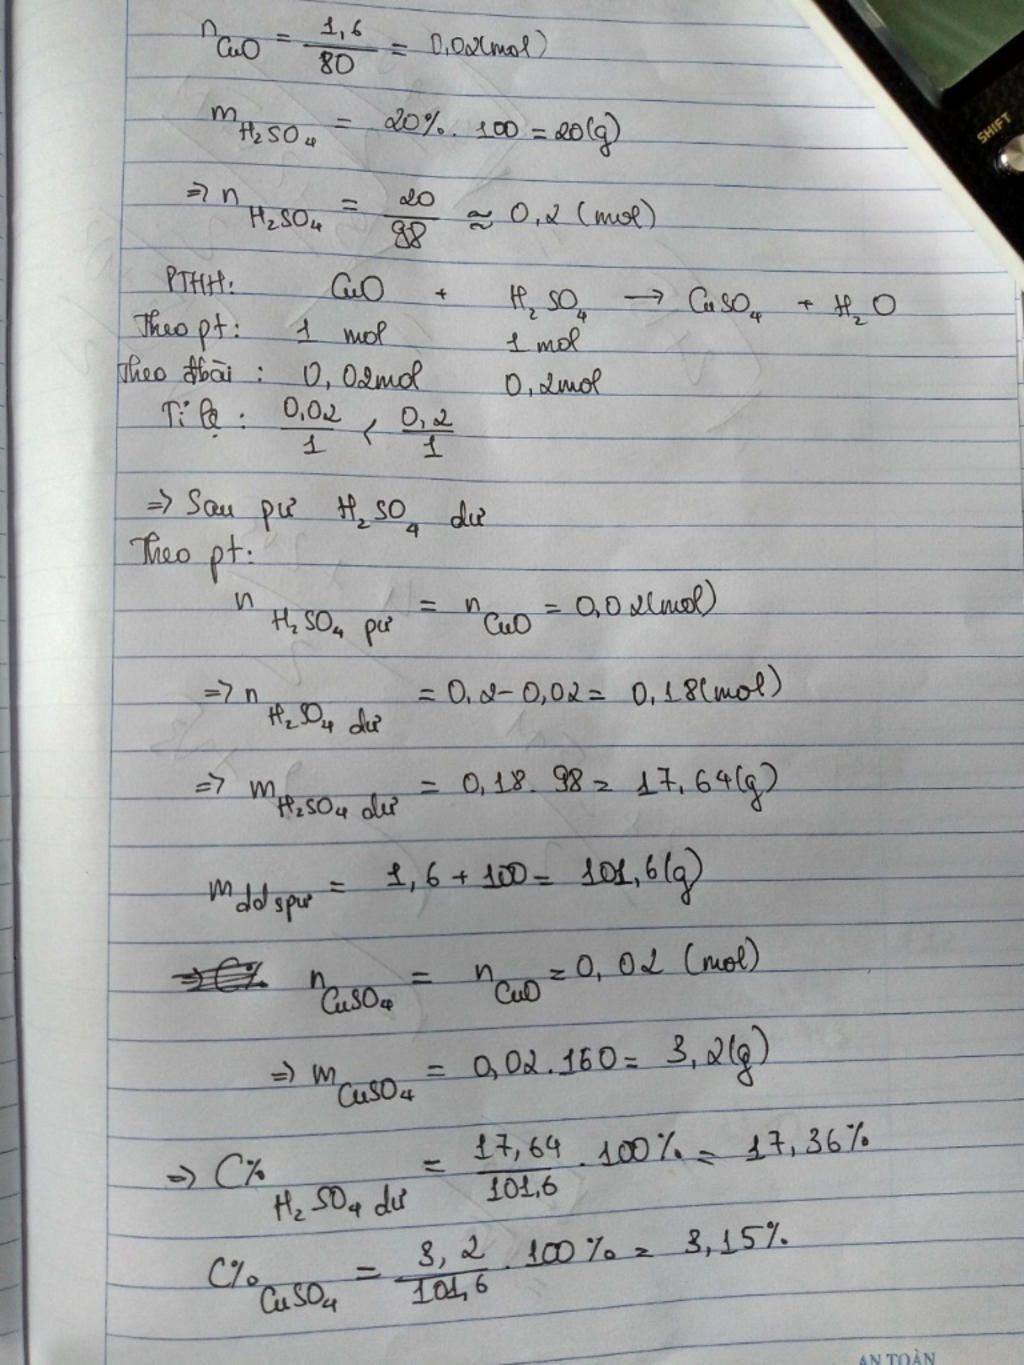 SHIFT
n CuO = 1,6/80 = 0,02(mol)
m H₂SO₄ = 20%. 100 = 20(g)
=> n H₂SO₄ = 20/98 ≈ 0,2 (mol)
PTHH: CuO + H₂SO₄ → CuSO₄ + H₂O
Theo pt: 1 mol 1 mol
Theo đbài : 0,02mol 0,2mol
Tỉ lệ : 0,02/1 < 0,2/1
=> Sau pư H₂SO₄ dư
Theo pt:
n H₂SO₄ pư = n CuO = 0,02(mol)
=> n H₂SO₄ dư = 0,2-0,02 = 0,18(mol)
=> m H₂SO₄ dư = 0,18. 98 = 17,64(g)
m dd spư = 1,6 + 100 = 101,6(g)
=> C% n CuSO₄ = n CuO = 0,02 (mol)
=> m CuSO₄ = 0,02.160 = 3,2(g)
=> C% H₂SO₄ dư = 17,64/101,6 . 100% = 17,36%
C% CuSO₄ = 3,2/101,6 . 100% = 3,15%
AN TOÀN